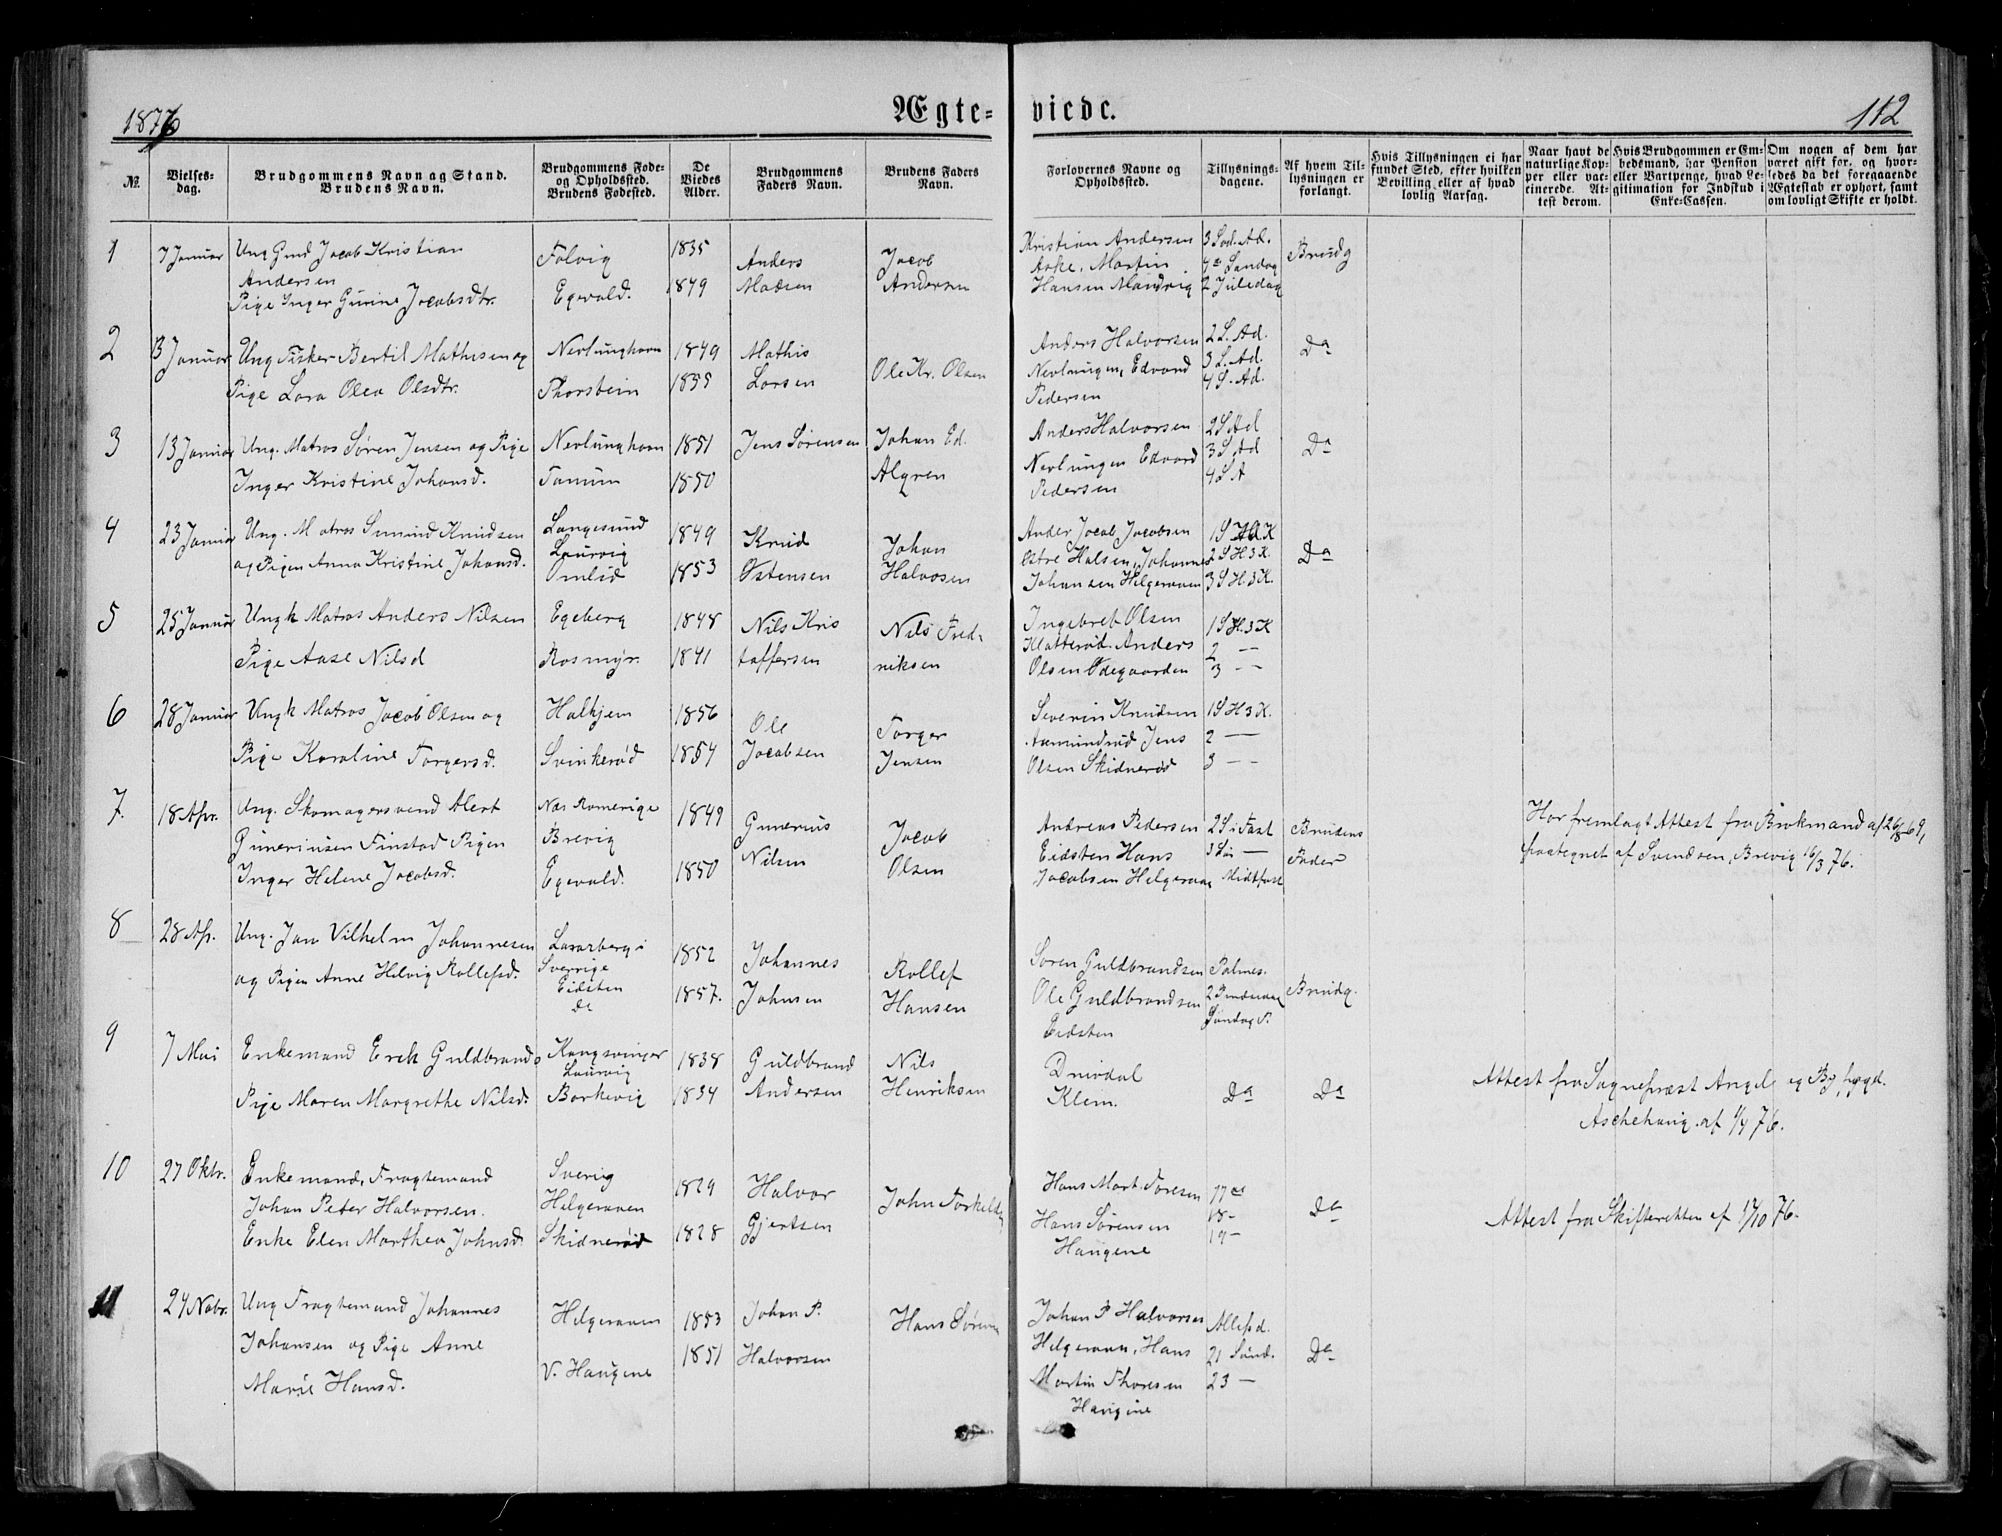 1876
Ægte-viede.
112
No.
Vielses-dag.
Brudgommens Navn og Stand. Brudens Navn.
Brudgommens Føde- og Opholdssted. Brudens Fødested.
De Viedes Alder.
Brudgommens Faders Navn.
Brudens Faders Navn.
Forlovernes Navne og Opholdssted.
Tillysnings-dagene.
Af hvem Tillysningen er forlangt.
Hvis Tillysningen ei har fundet Sted, efter hvilken Bevilling eller af hvad lovlig Aarsag.
Naar havt de naturlige Kopper eller vaccinerede. Attest derom.
Hvis Brudgommen er Embedsmand, har Pension eller Vartpenge, hvad Legitimation for Indskud i Enke-Cassen.
Om nogen af dem har været gift før, og hvorledes da det foregaaende Ægteskab er ophørt, samt om lovligt Skifte er holdt.
1
7 Januar
Ung Gmd Jacob Kristian
Andersen
Pige Inger Gurine Jacobsdtr.
Folvig
Egevald.
1835
1849
Anders
Madsen
Jacob
Andersen
Kristian Andersen
Aske, Martin
Hansen Manvig
3 Sød. Ad.
4de Søndag
2 Juledag
Brudg
2
13 Januar
Ung Fisker Bertil Mathisen og
Pige Lara Olea Olsdtr.
Nevlunghavn
Thorstein
1849
1855
Mathis
Larsen
Ole Kr. Olsen
Anders Halvorsen
Nevlungen, Edvard
Pedersen
2 S. Ad.
3 S. Ad.
4 S. Ad.
Do
3
13 Januar
Ung. Matros Søren Jensen og Pige
Inger Kristine Johansd.
Nevlunghavn
Tanum
1851
1850
Jens Sørensen
Johan Ed.
Algren
Anders Halvorsen
Nevlungen Edvard
Pedersen
2 S Ad
3 S. Ad
4 S A
Do
4
23 Januar
Ung. Matros Simund Knudsen
og Pigen Anna Kristine Johansd.
Langesund
Laurvig
Omlid
1849
1853
Knud
Østensen
Johan
Halvorsen
Ander Jacob Jacobsen
Østre Halsen, Johannes
Johansen Helgeraaen
1 S H 3 K
2 S H 3 K.
3 S H 3 K.
Do
5
25 Januar
Ungk Matros Anders Nilsen
Pige Aase Nilsd
Egeberg
Rosmyr.
1848
1841
Nils Kris
toffersen
Nils Fred-
riksen
Ingebret Olsen
Klatterød. Anders
Olsen Ødegaarden
1 S H. 3 K
2 — —
3 — —
6
28 Januar
Ungk Matros Jacob Olsen og
Pige Karoline Torgersd.
Halhjem
Svinkerød
1856
1854
Ole
Jacobsen
Torger
Jensen
Severin Knudsen
Aamundrød Jens
Olsen Skidnerød
1 S H 3 K.
2 —
3 — —
7.
18 Apr.
Ung. Skomagersvend Alert
Gunerinsen Finstad Pigen
Inger Helene Jacobsd.
Næs Romerige
Brevig
Egevald.
1849
1850
Gunerius
Nilsen
Jacob
Olsen
Andreas Pedersen
Eidsten Hans
Jacobsen Helgeraae
2 S i Fast
3 Søi —
Midtfast
Brudens
Fader
Har fremlagt Attest fra Brokmand af 26/8 69,
paategnet af Svendsen, Brevig 16/3 76.
8
28 Ap.
Ung. Jan Vilhelm Johannesen
og Pigen Anne Helvig Rollefsd.
Sverrige
Eidsten
Do
1852
1857.
Johannes
Johnsen
Rollef
Hansen
Søren Guldbrandsen
Ole Guldbrandsen
Eidsten
Palmes.
2 Paaskedag
Søndag P.
Brudg.
9
7 Mai
Enkemand Erek Guldbrands
Pige Maren Margrethe Nilsd.
Kongsvinger
Laurvig
Barkevig
1838
1834
Guldbrand
Andersen
Nils
Henriksen
Dnivdal
Klem.
Do
Do
Attest fra Sogneprest Angel og By foged.
Aschehoug af 1/4 76.
10
27 Oktr.
Enkemand, Fragtemand
Johan Peter Halvorsen.
Enke Elen Marthea Johnsd.
Sverig
Helgeraaen
Skidnerød
1829
1828
Halvor
Gjertsen
John Torkelds
Hans Mart. Toresen
Hans Sørensen
Haugene
17de
18 -
19 —
Do
Attest fra Skifteretten af 17/10 76.
11
24 Nobr.
Ung Fragtemand Johannes
Johansen og Pige Anne
Marie Hansd.
Helgeraaen
V. Haugene
1853
1851
Johan P.
Halvorsen
Hans Sørens
Johan P Halvorsen
Helgeraaen, Hans
Martin Thoresen
Haugene
Allesd.
21 Sønd.
23 —
Do